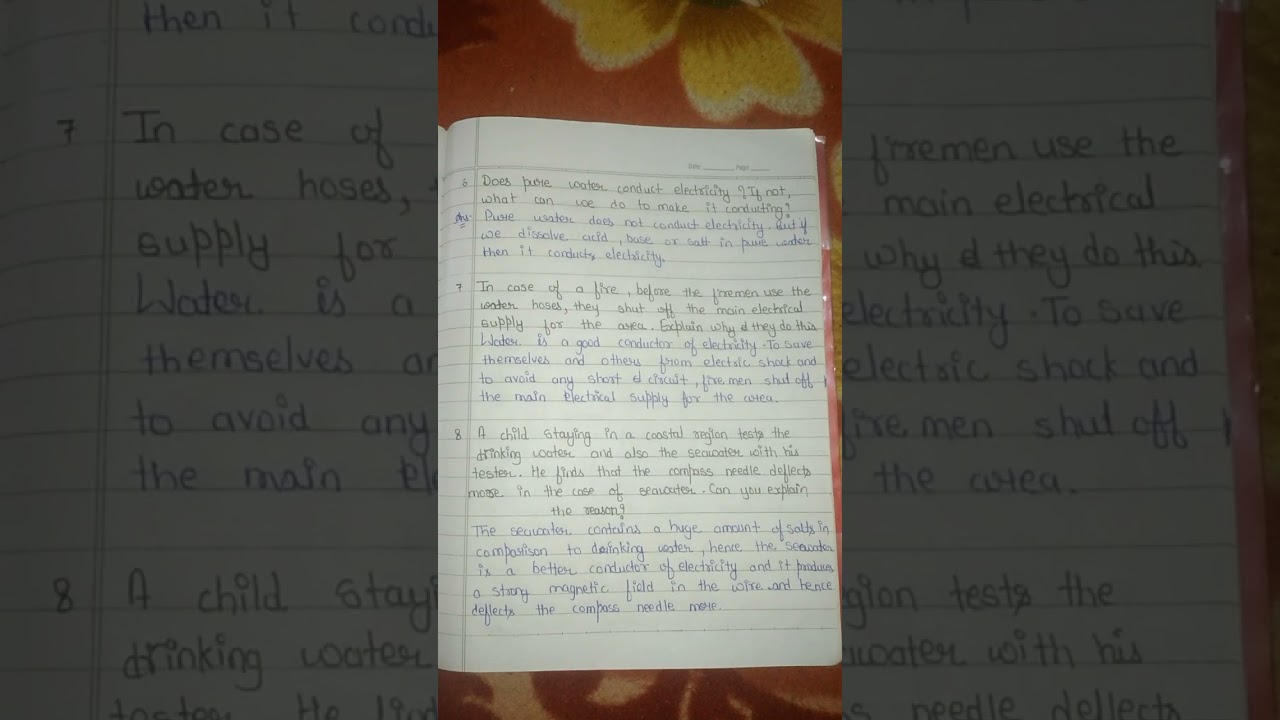 Date Page
6 Does pure water conduct electricity? If not,
what can we do to make it conducting?
Ans- Pure water does not conduct electricity. But if
we dissolve acid, base or salt in pure water
then it conducts electricity.
7 In case of a fire, before the firemen use the
water hoses, they shut off the main electrical
supply for the area. Explain why d they do this
Water is a good conductor of electricity. To save
themselves and others from electric shock and
to avoid any short d circuit, fire men shut off
the main electrical supply for the area.
8 A child staying in a coastal region tests the
drinking water and also the seawater with his
tester. He finds that the compass needle deflects
more in the case of seawater. Can you explain
the reason?
The seawater contains a huge amount of salts in
comparison to drinking water, hence the seawater
is a better conductor of electricity and it produces
a strong magnetic field in the wire and hence
deflects the compass needle more.